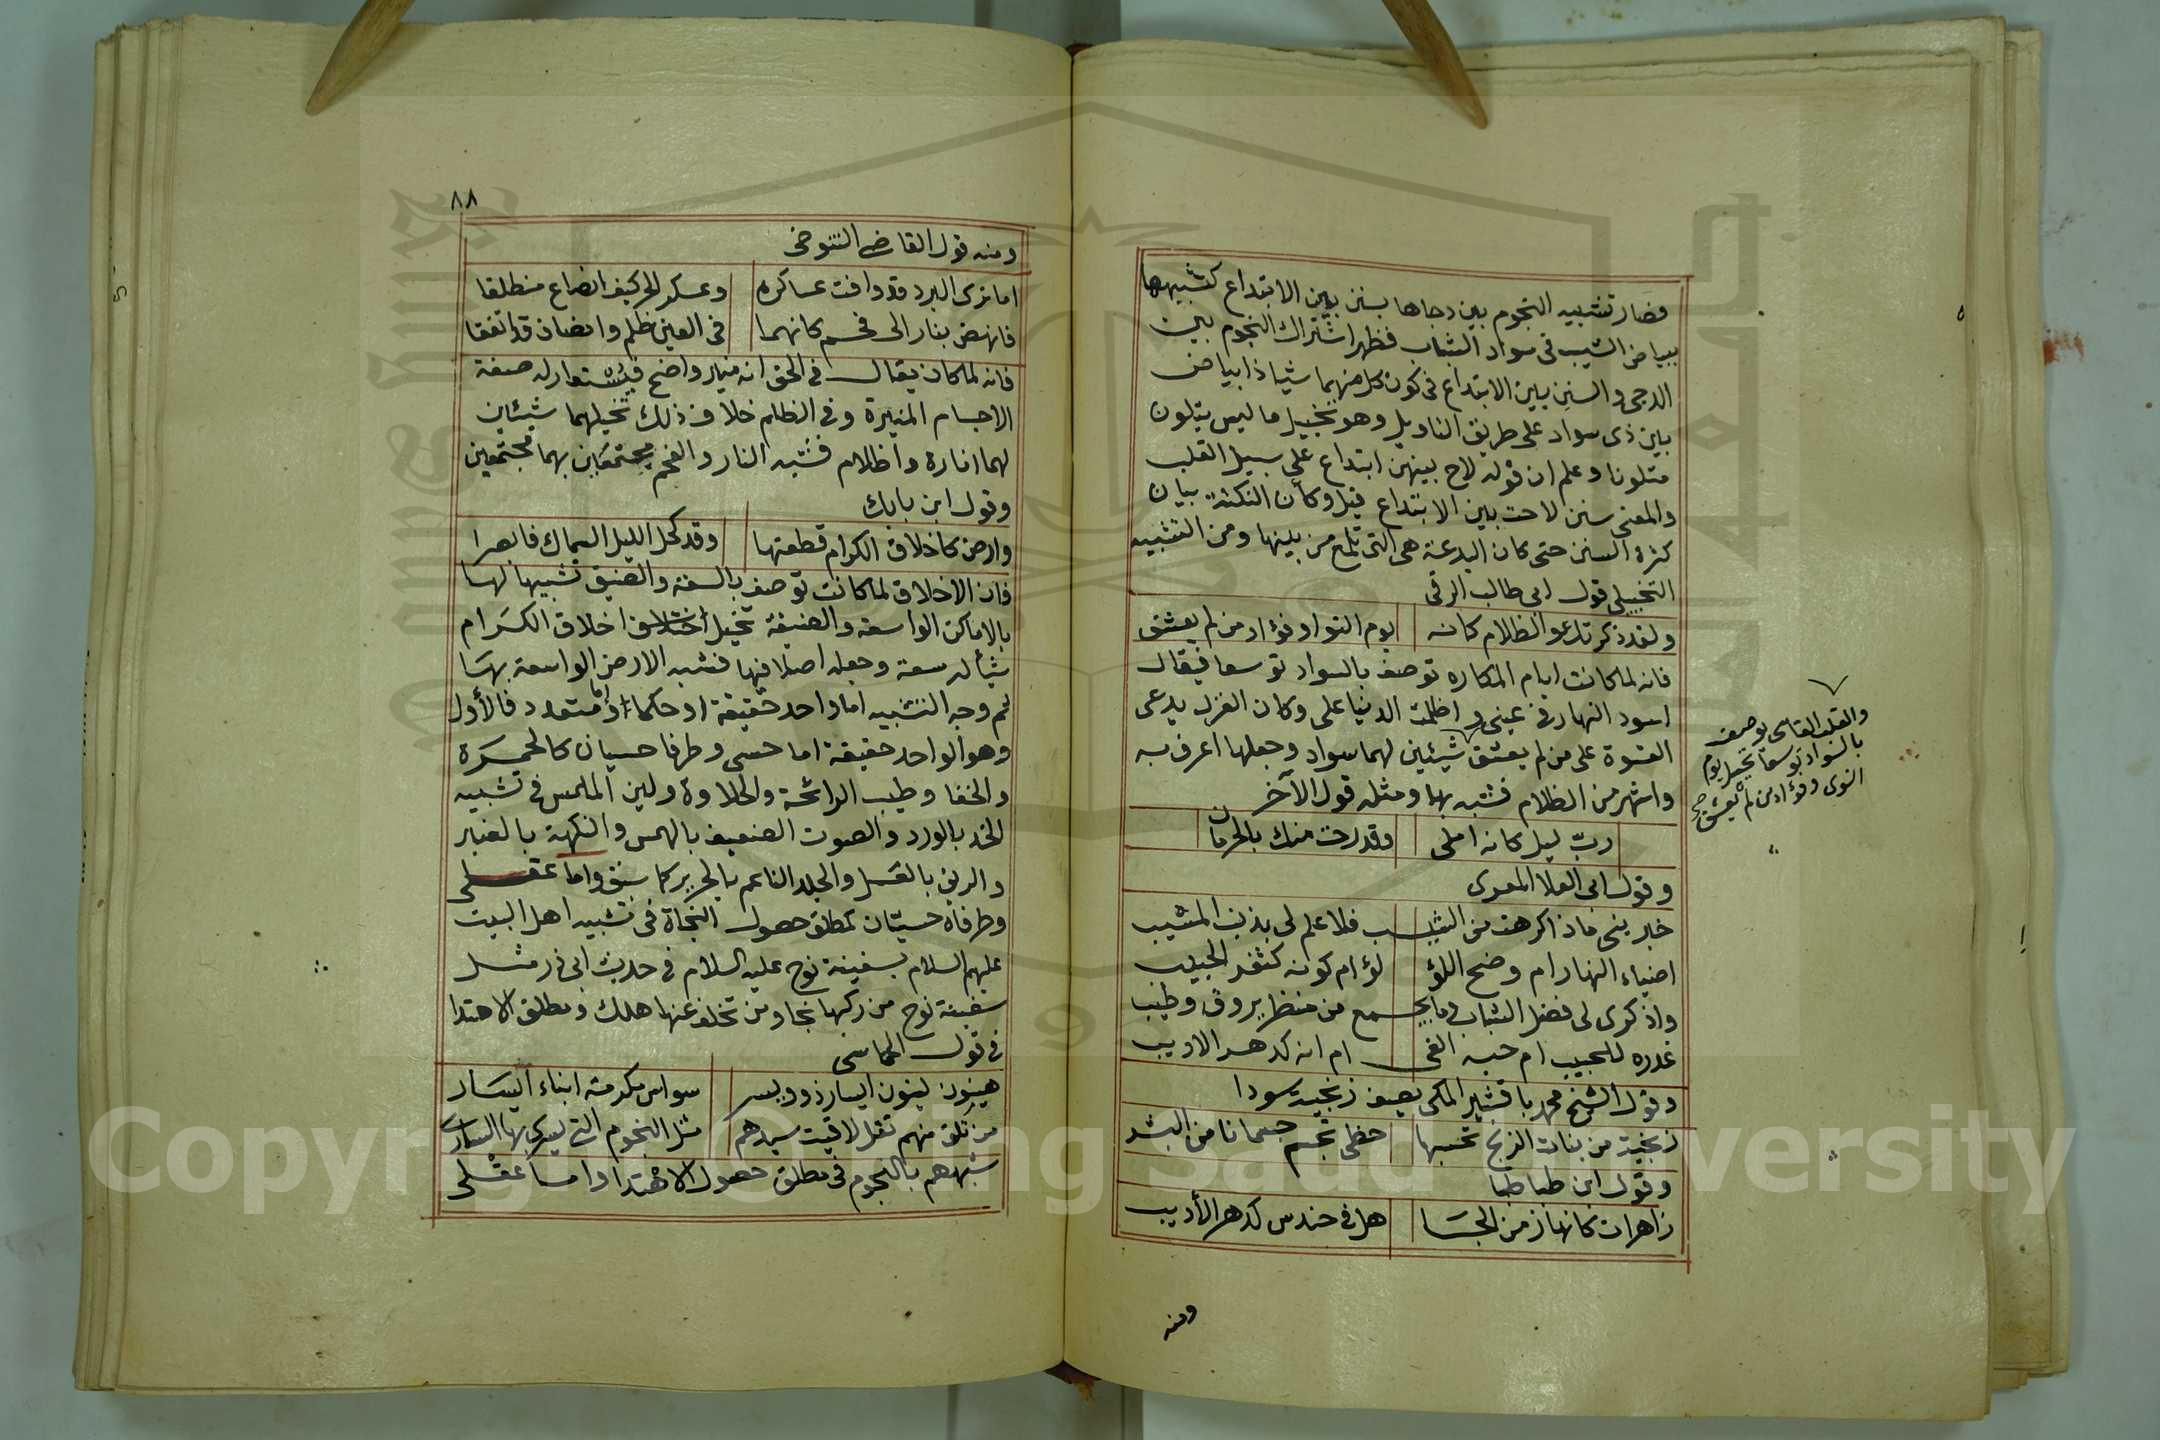 فصار تشبيه النجوم بين دجاها بسنن بين الابتداع كتشبيهها
ببياض الشيب في سواد الشباب فظهر اشتراك النجوم بين
الدجى والسنن بين الابتداع في كون كل منهما شيا ذا بياض
بين ذى سواد على طريق التاويل وهو تخييل ما ليس بتلون
متلونا وعلم ان قوله لاح بينهن ابتداع على سبيل القلب
والمعنى سنن لاحت بين الابتداع قيل وكأن النكتة بيان
كثرة السنن حتى كان البدعة هي التي تلمع من بينها ومن التشبيه
التخييلى قول ابى طالب الرقى
ولقد ذكرتك والظلام كانه يوم النوا وفؤاد من لم يعشق
فانه لما كانت ايام المكاره توصف بالسواد توسعا فيقال
اسود النهار في عينى واظلمت الدنيا على وكان الغزل يدعى
القسوة على من لم يعشق شيئين لهما سواد وجعلها اعرف به
واشهر من الظلام فشبه بها ومثله قول الآخر
ربّ ليل كانه املى وقد رحت منك بالحرمان
وقول ابى العلا المعرى
خبرينى ماذا كرهت من الشيب فلا علم لى بذنب المشيب
اضياء النهار ام وضح اللؤ لؤ ام كونه كثغر الحبيب
واذكرى لى فضل الشباب وما يجمع من منظر يروق وطيب
غدره للحبيب ام حبه الغى ام انه كدهر الاديب
وقول الشيخ محمد باقشير المكى يصف زنجية سودا
زنجية من بنات الزنج تحسبها حظى تجسم جسمانا من البشر
وقول ابن طباطبا
زاهرات كانها زمن الجسا هل في حندس كدهر الأديب
ومنه
والقلب القاسى يوصف
بالسواد توسعا تخيل يوم
النوى وفؤاد من لم يعشق صح
٨٨
ومنه قول القاضى التنوخى
اما ترى البرد قد وافت عساكره وعسكر الحر كيف انصاع منطلقا
فانهض بنار الى فحم كانهما في العين ظلم وانصاف قد اتفقا
فانه لما كان يقال في الحق انه منير واضح فيستعار له صفة
الاجسام المنيرة وفى الظلم خلاف ذلك تخيلهما شيئين
لهما انارة واظلام فشبه النار والفحم مجتمعين بهما مجتمعين
وقول ابن بابك
وارض كاخلاق الكرام قطعتها وقد كحل الليل السماك فابصرا
فان الاخلاق لما كانت توصف بالسعة والضيق تشبيها لها
بالاماكن الواسعة والضيقة تخيل أخلاق الكرام
شيأ له سعة وجعله اصلا فيها فشبه الارض الواسعة بها
ثم وجه التشبيه اما واحد حقيقة او حكما واما متعدد فالأول
وهو الواحد حقيقة اما حسى وطرفا حسيان كالحمرة
والخفا وطيب الرائحة والحلاوة ولين الملمس في تشبيه
الخد بالورد والصوت الضعيف بالهمس والنكهة بالعنبر
والريق بالعسل والجلد الناعم بالحرير كما سبق واما عقلى
وطرفاه حسيّان كمطلق حصول النجاة في تشبيه اهل البيت
عليهم السلام بسفينة نوح عليه السلام في حديث ابى ذر مثل
سفينة نوح من ركبها نجا ومن تخلف عنها هلك ومطلق الاهتدا
في قول الحماسى
هينون لينون ايسار ذوو يسر سواس مكرمة ابناء ايسار
من تلق منهم تقل لاقيت سيدهم مثل النجوم التى يسرى بها السارى
شبههم بالنجوم في مطلق حصول الاهتدا واما عقلى
Copyright © King Saud University